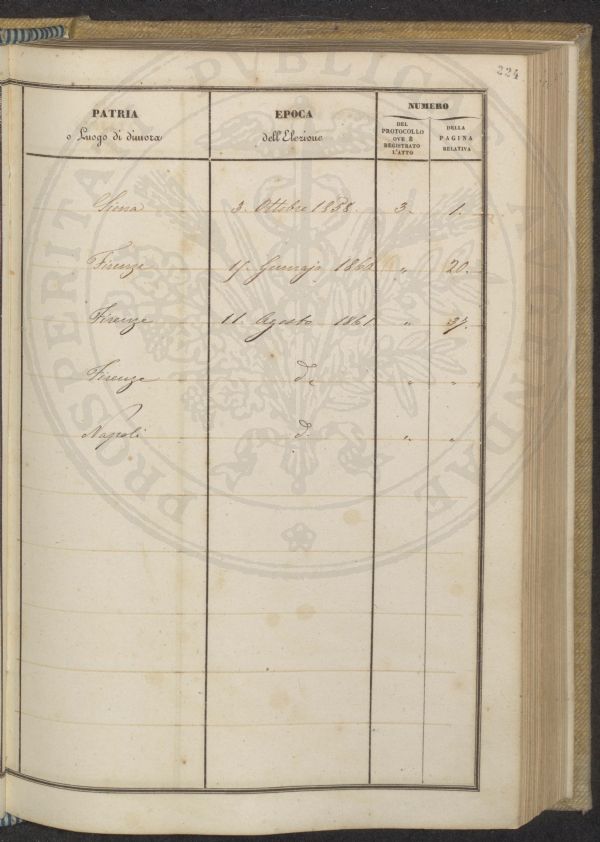 224
PATRIA
o Luogo di dimora
EPOCA
dell'Elezione
NUMERO
DEL
PROTOCOLLO
OVE È
REGISTRATO
L'ATTO
DELLA
PAGINA
RELATIVA
Siena 3. Ottobre 1858. 3. 1.
Firenze Gennajo „ 20.
Firenze 11. Agosto 1861 „ 37.
Firenze d.o „ „
Napoli d. „ „
PROSPERITATI PUBLICAE AUGENDAE